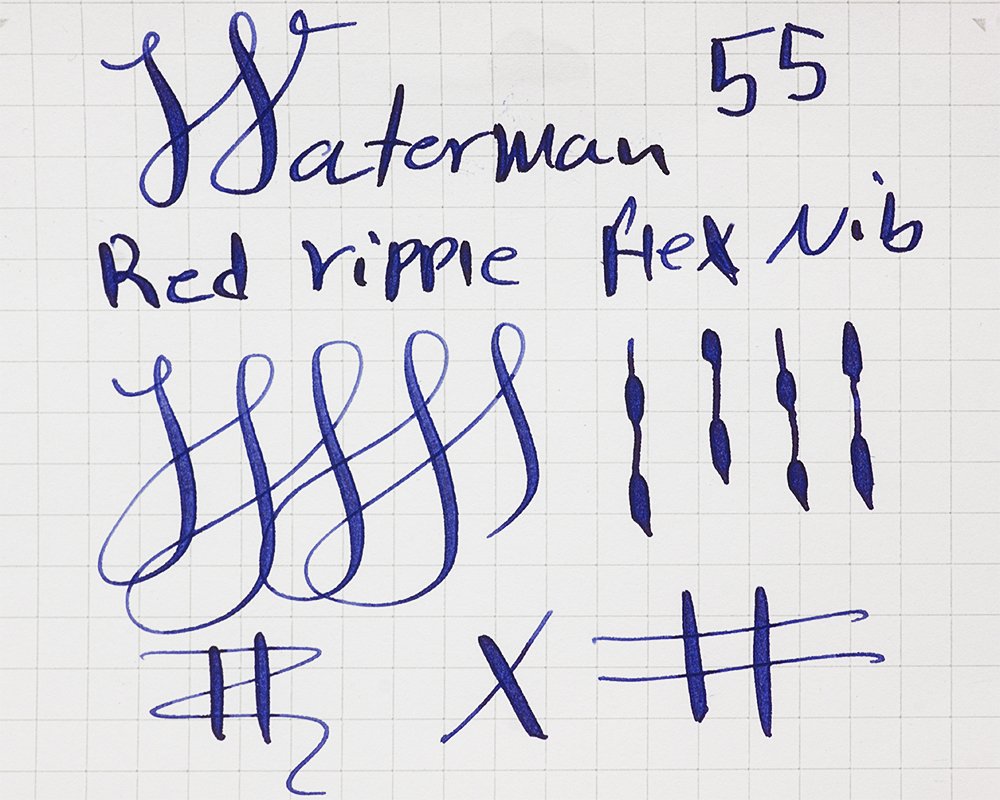 Waterman 55
Red ripple flex Nib
X